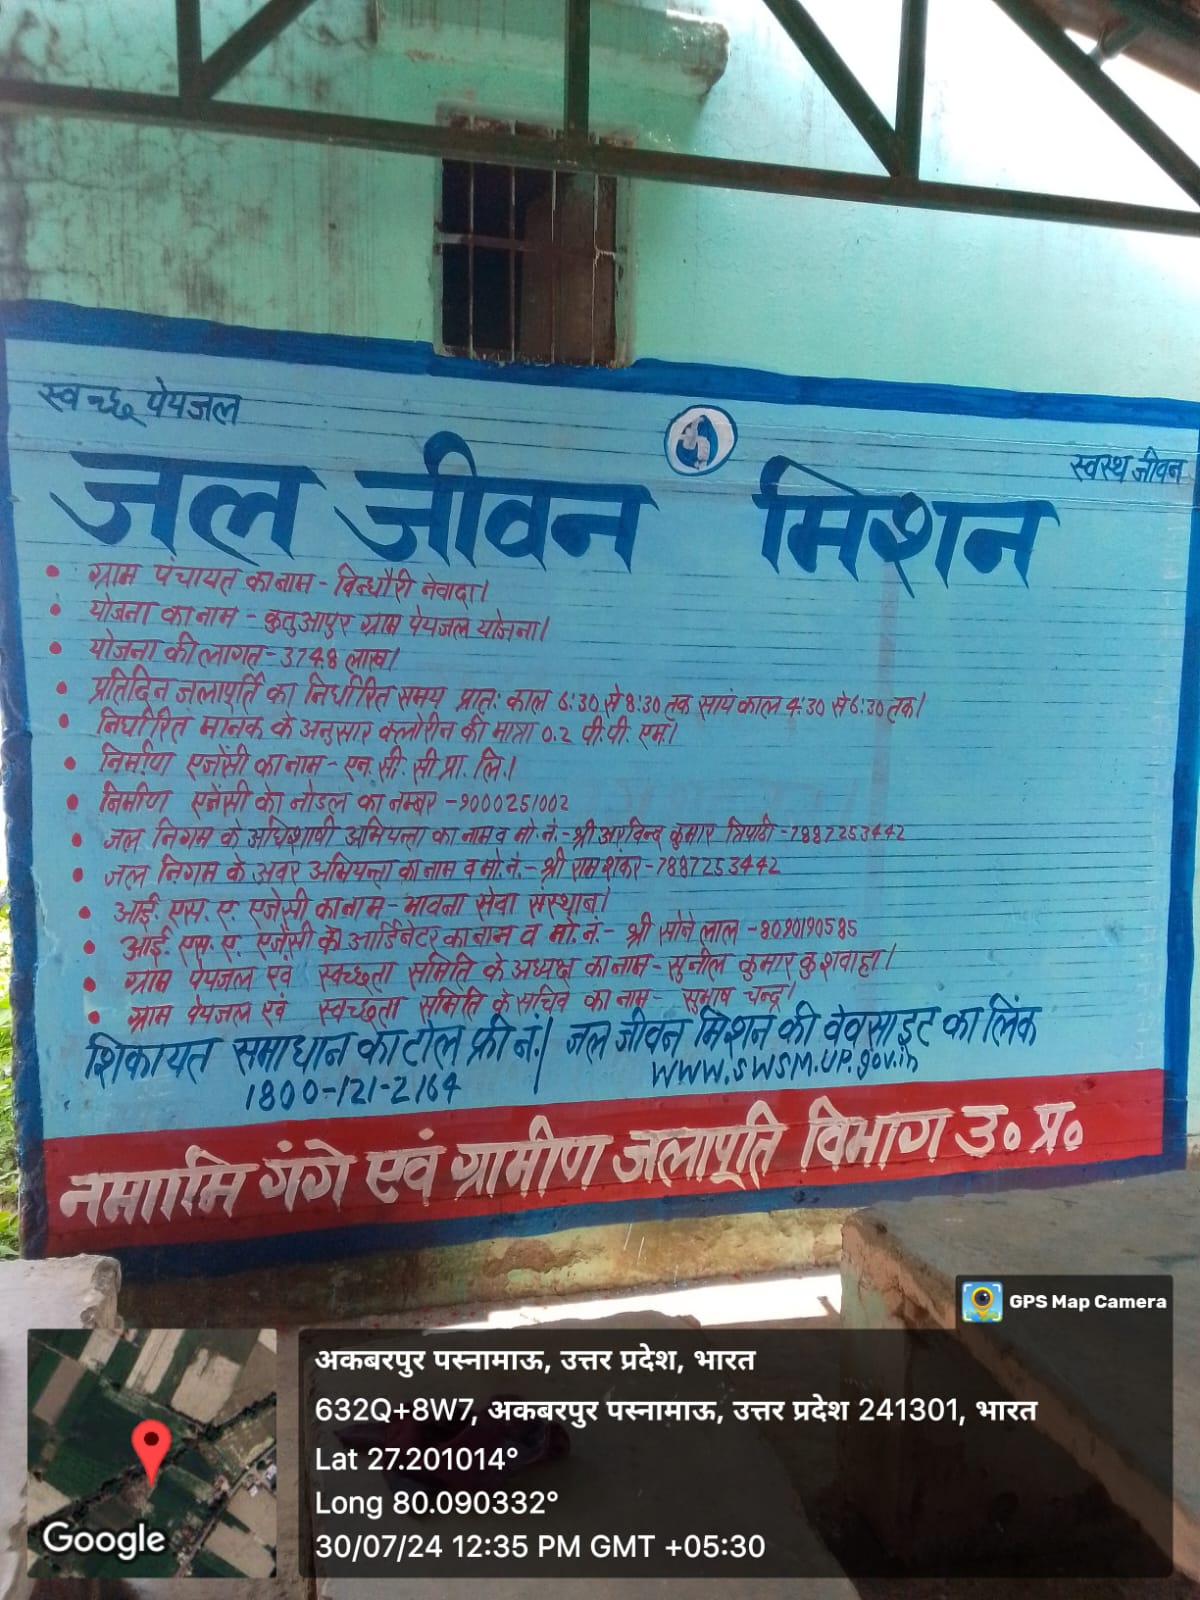 स्वच्छ पेयजल
स्वस्थ जीवन
जल जीवन मिशन
• ग्राम पंचायत का नाम - विन्धौरी नेवादा।
• योजना का नाम - कुतुआपुर ग्राम पेयजल योजना।
• योजना की लागत - 374.8 लाख।
• प्रतिदिन जलापूर्ति का निर्धारित समय प्रातः काल 6:30 से 8:30 तक सायं काल 4:30 से 6:30 तक।
• निर्धारित मानक के अनुसार क्लोरीन की मात्रा 0.2 पी.पी. एम।
• निर्माण एजेंसी का नाम - एन. सी. सी प्रा. लि.।
• निर्माण एजेंसी के नोडल का नम्बर - 9000251002
• जल निगम के अधिशाषी अभियन्ता का नाम व मो. नं. - श्री अरविन्द कुमार त्रिपाठी - 7887253442
• जल निगम के अवर अभियन्ता का नाम व मो. नं. - श्री राम शंकर - 7887253442
• आई. एस. ए. एजेंसी का नाम - भावना सेवा संस्थान।
• आई. एस. ए. एजेंसी के आर्डिनेटर का नाम व मो. नं. - श्री सोने लाल - 8090190585
• ग्राम पेयजल एवं स्वच्छता समिति के अध्यक्ष का नाम - सुनील कुमार कुशवाहा।
• ग्राम पेयजल एवं स्वच्छता समिति के सचिव का नाम - सुभाष चन्द्र।
शिकायत समाधान का टोल फ्री नं.। जल जीवन मिशन की वेवसाइट का लिंक
1800-121-2164 www.swsm.up.gov.in
नमामि गंगे एवं ग्रामीण जलापूर्ति विभाग उ० प्र०
GPS Map Camera
अकबरपुर पस्नामाऊ, उत्तर प्रदेश, भारत
632Q+8W7, अकबरपुर पस्नामाऊ, उत्तर प्रदेश 241301, भारत
Lat 27.201014°
Long 80.090332°
30/07/24 12:35 PM GMT +05:30
Google